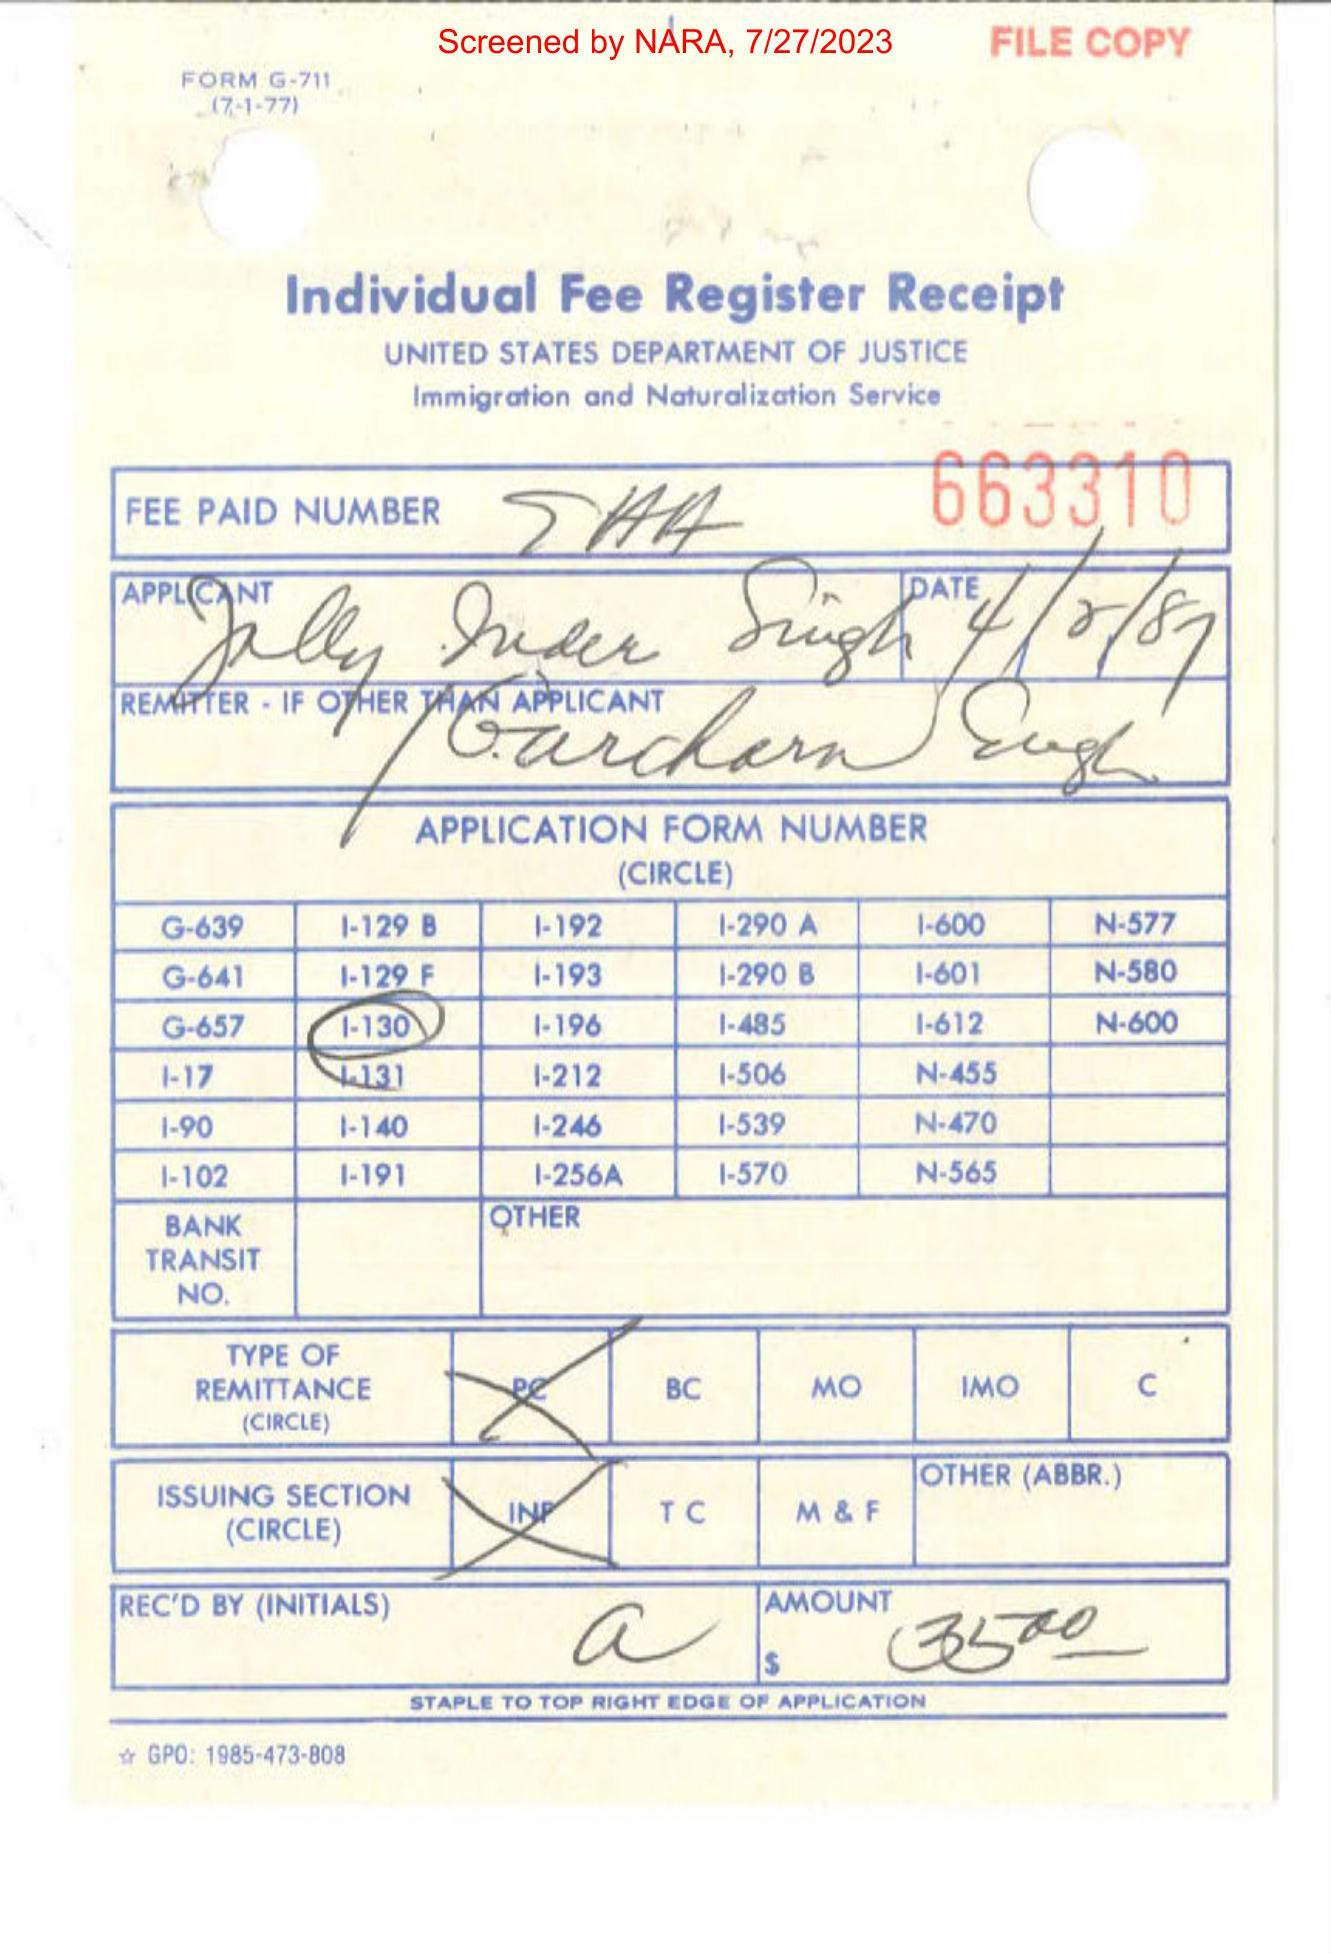 Screened by NARA, 7/27/2023
FILE COPY
FORM G-711
(7-1-77)
Individual Fee Register Receipt
UNITED STATES DEPARTMENT OF JUSTICE
Immigration and Naturalization Service
663310
FEE PAID NUMBER
APPLICANT Jolly Inder Singh DATE 4/2/87
REMITTER - IF OTHER THAN APPLICANT
Gurcharn Singh
APPLICATION FORM NUMBER
(CIRCLE)
G-639 I-129 B I-192 I-290 A I-600 N-577
G-641 I-129 F I-193 I-290 B I-601 N-580
G-657 I-130 I-196 I-485 I-612 N-600
I-17 I-131 I-212 I-506 N-455
I-90 I-140 I-246 I-539 N-470
I-102 I-191 I-256A I-570 N-565
BANK TRANSIT NO.
OTHER
TYPE OF REMITTANCE (CIRCLE) PC BC MO IMO C
ISSUING SECTION (CIRCLE) INF T C M & F OTHER (ABBR.)
REC'D BY (INITIALS) a AMOUNT $ 35 00
STAPLE TO TOP RIGHT EDGE OF APPLICATION
☆ GPO: 1985-473-808